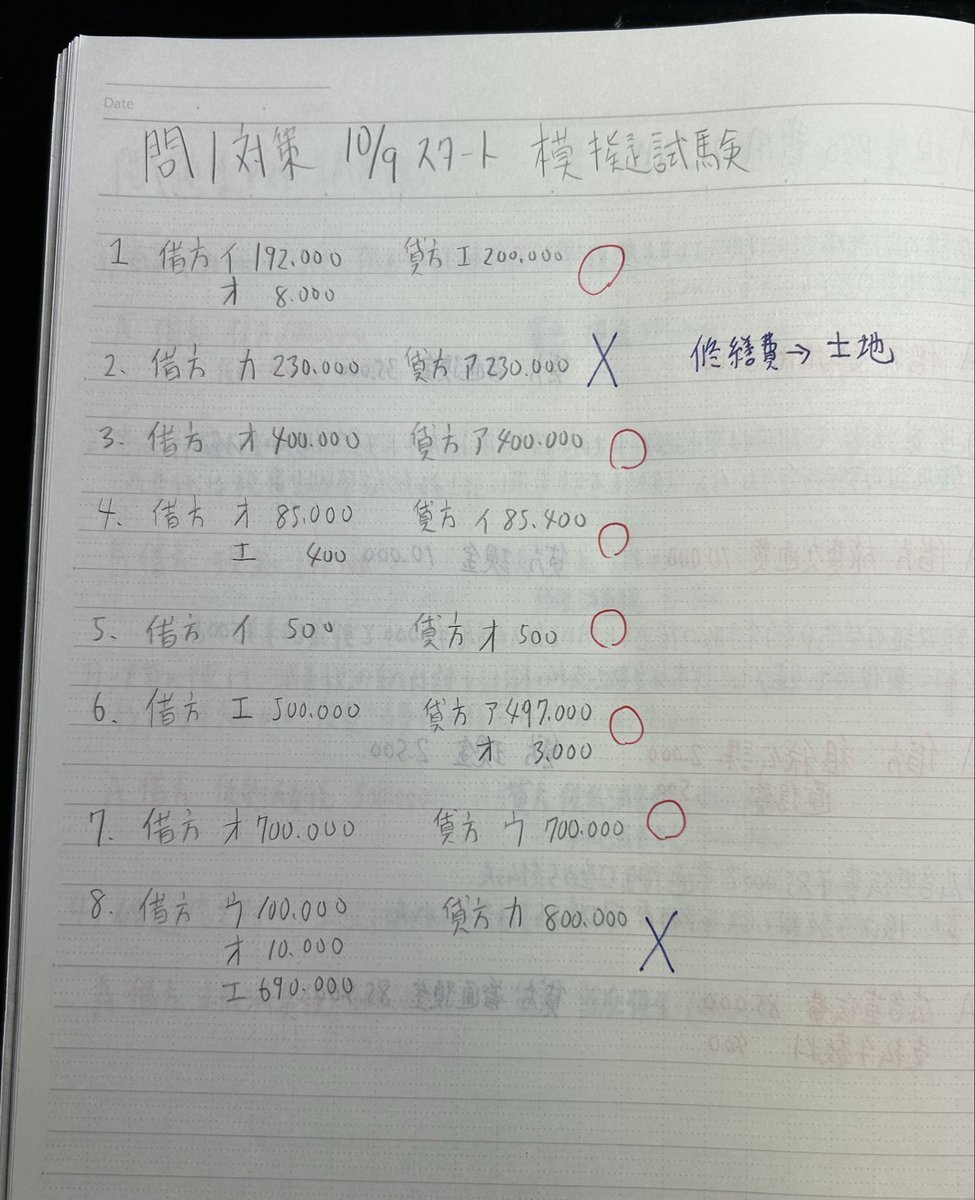 Date
問1対策 10/9 スタート 模擬試験
1 借方 イ 192.000 貸方 エ 200.000
オ 8.000
2、借方 カ 230.000 貸方 ア 230.000 修繕費→土地
3、借方 オ 400.000 貸方 ア 400.000
4、借方 オ 85.000 貸方 イ 85.400
エ 400
5、借方 イ 500 貸方 オ 500
6、借方 エ 500.000 貸方 ア 497.000
オ 3.000
7、借方 オ 700.000 貸方 ウ 700.000
8、借方 ウ 100.000 貸方 カ 800.000
オ 10.000
エ 690.000